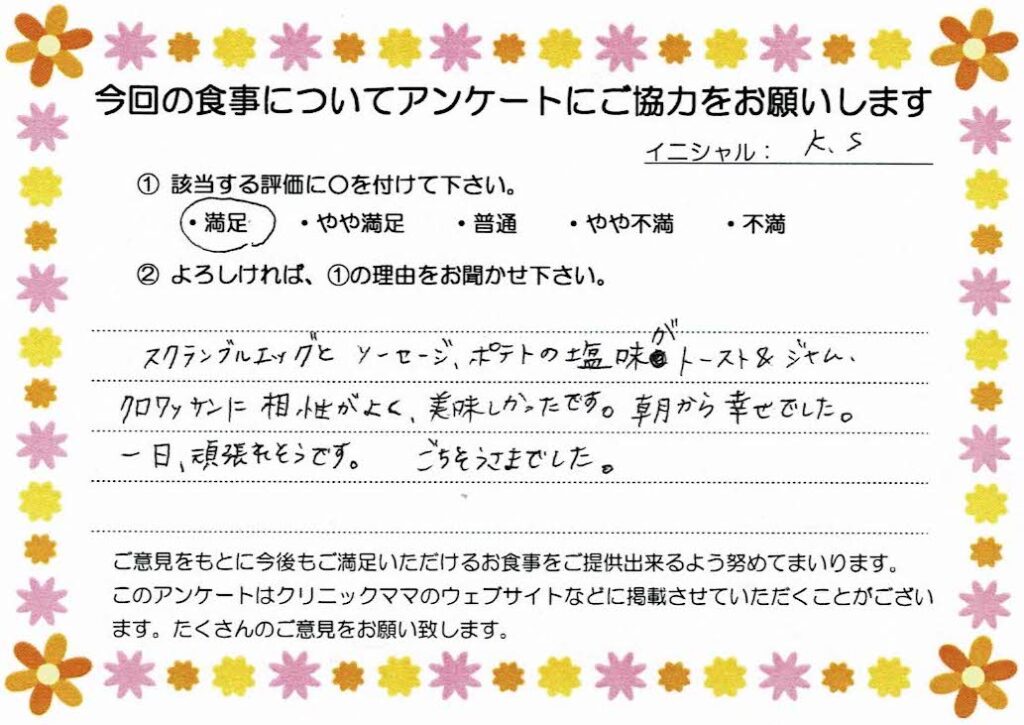 今回の食事についてアンケートにご協力をお願いします
イニシャル： K、S
① 該当する評価に〇を付けて下さい。
・満足 ・やや満足 ・普通 ・やや不満 ・不満
② よろしければ、①の理由をお聞かせ下さい。
スクランブルエッグと ソーセージ、ポテトの塩味がトースト＆ジャム、
クロワッサンに相性がよく、美味しかったです。朝から幸せでした。
一日、頑張れそうです。 ごちそうさまでした。
ご意見をもとに今後もご満足いただけるお食事をご提供出来るよう努めてまいります。
このアンケートはクリニックママのウェブサイトなどに掲載させていただくことがござい
ます。たくさんのご意見をお願い致します。